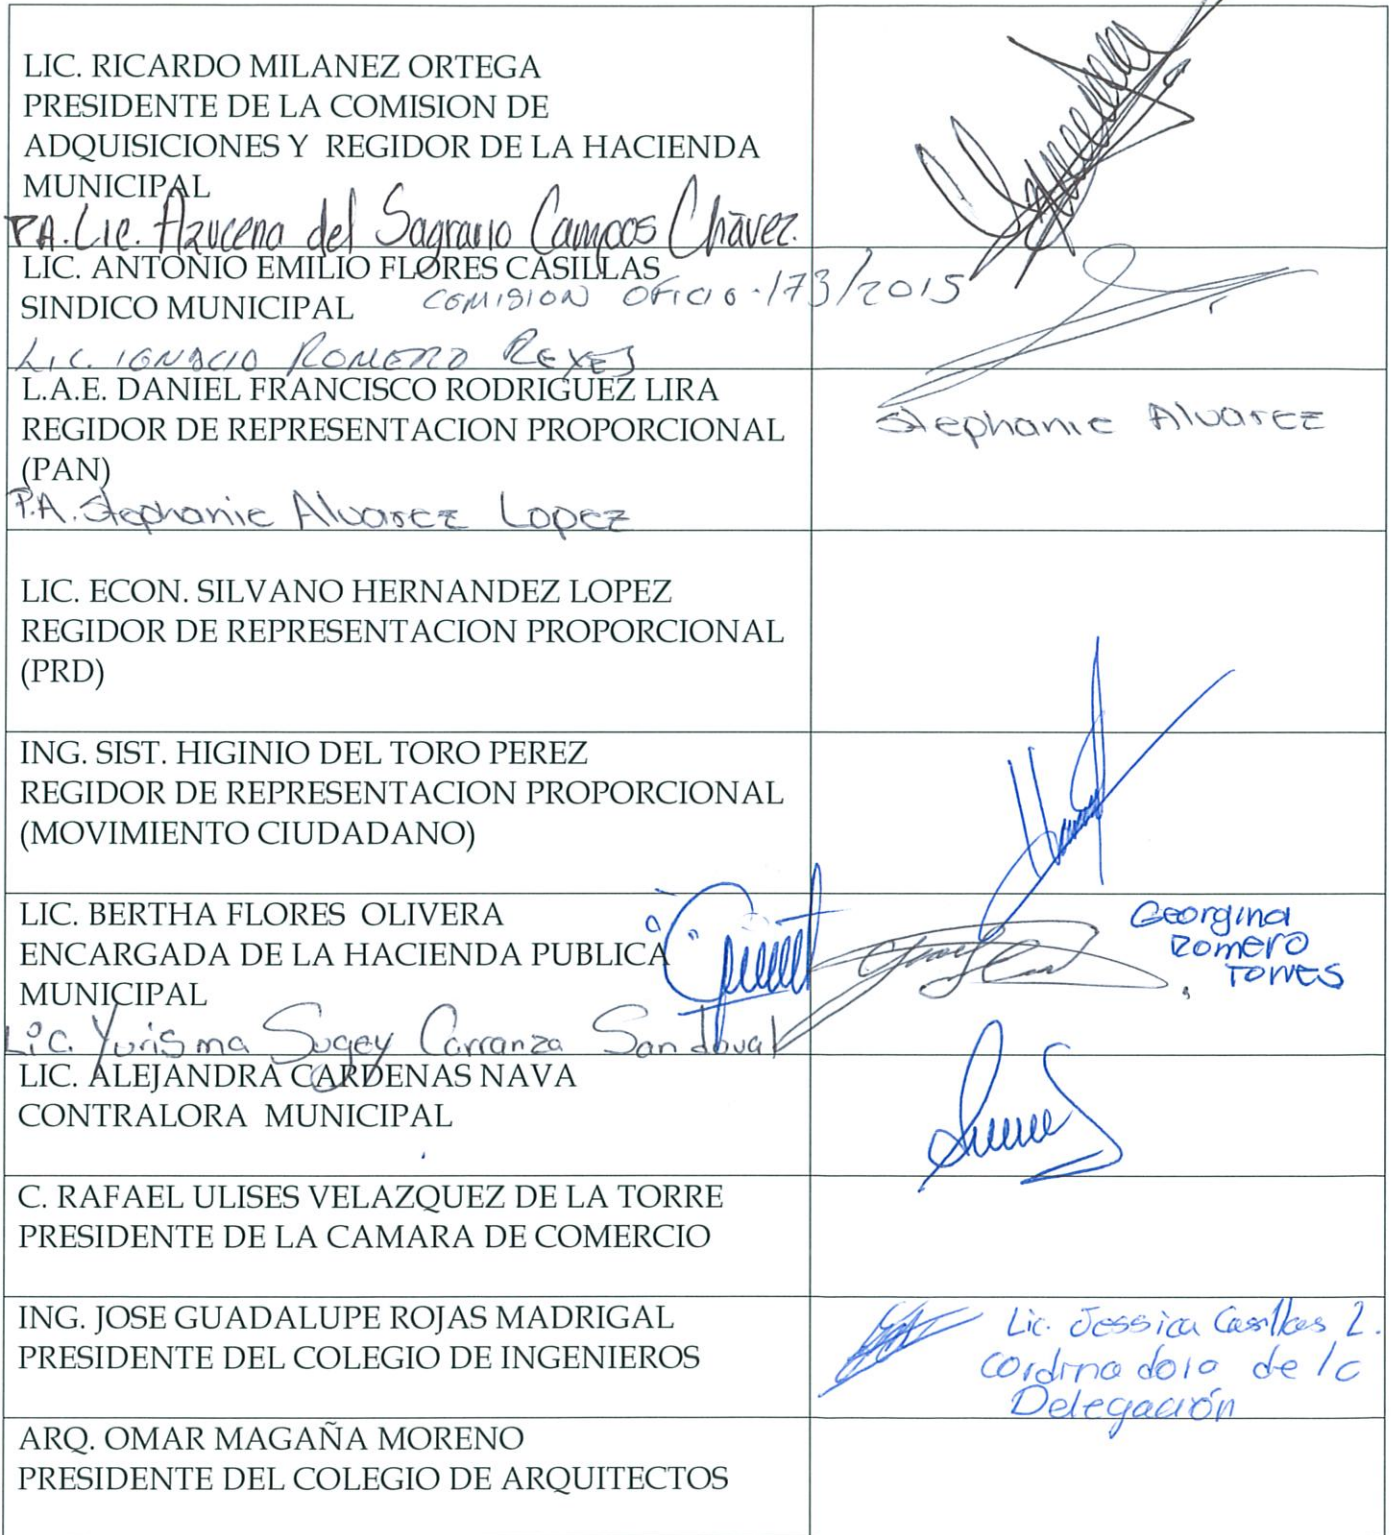 LIC. RICARDO MILANEZ ORTEGA
PRESIDENTE DE LA COMISION DE
ADQUISICIONES Y REGIDOR DE LA HACIENDA
MUNICIPAL
P.A. Lic. Azucena del Sagrario Campos Chávez.
LIC. ANTONIO EMILIO FLORES CASILLAS
SINDICO MUNICIPAL
COMISION OFICIO-173/2015
LIC. IGNACIO ROMERO REYES
L.A.E. DANIEL FRANCISCO RODRIGUEZ LIRA
REGIDOR DE REPRESENTACION PROPORCIONAL
(PAN)
P.A. Stephanie Alvarez Lopez
Stephanie Alvarez
LIC. ECON. SILVANO HERNANDEZ LOPEZ
REGIDOR DE REPRESENTACION PROPORCIONAL
(PRD)
ING. SIST. HIGINIO DEL TORO PEREZ
REGIDOR DE REPRESENTACION PROPORCIONAL
(MOVIMIENTO CIUDADANO)
LIC. BERTHA FLORES OLIVERA
ENCARGADA DE LA HACIENDA PUBLICA
MUNICIPAL
Lic. Yurisma Sugey Carranza Sandoval
Georgina
Romero
Torres
LIC. ALEJANDRA CARDENAS NAVA
CONTRALORA MUNICIPAL
C. RAFAEL ULISES VELAZQUEZ DE LA TORRE
PRESIDENTE DE LA CAMARA DE COMERCIO
ING. JOSE GUADALUPE ROJAS MADRIGAL
PRESIDENTE DEL COLEGIO DE INGENIEROS
Lic. Jessica Casillas L.
Cordinadora de la
Delegación
ARQ. OMAR MAGAÑA MORENO
PRESIDENTE DEL COLEGIO DE ARQUITECTOS